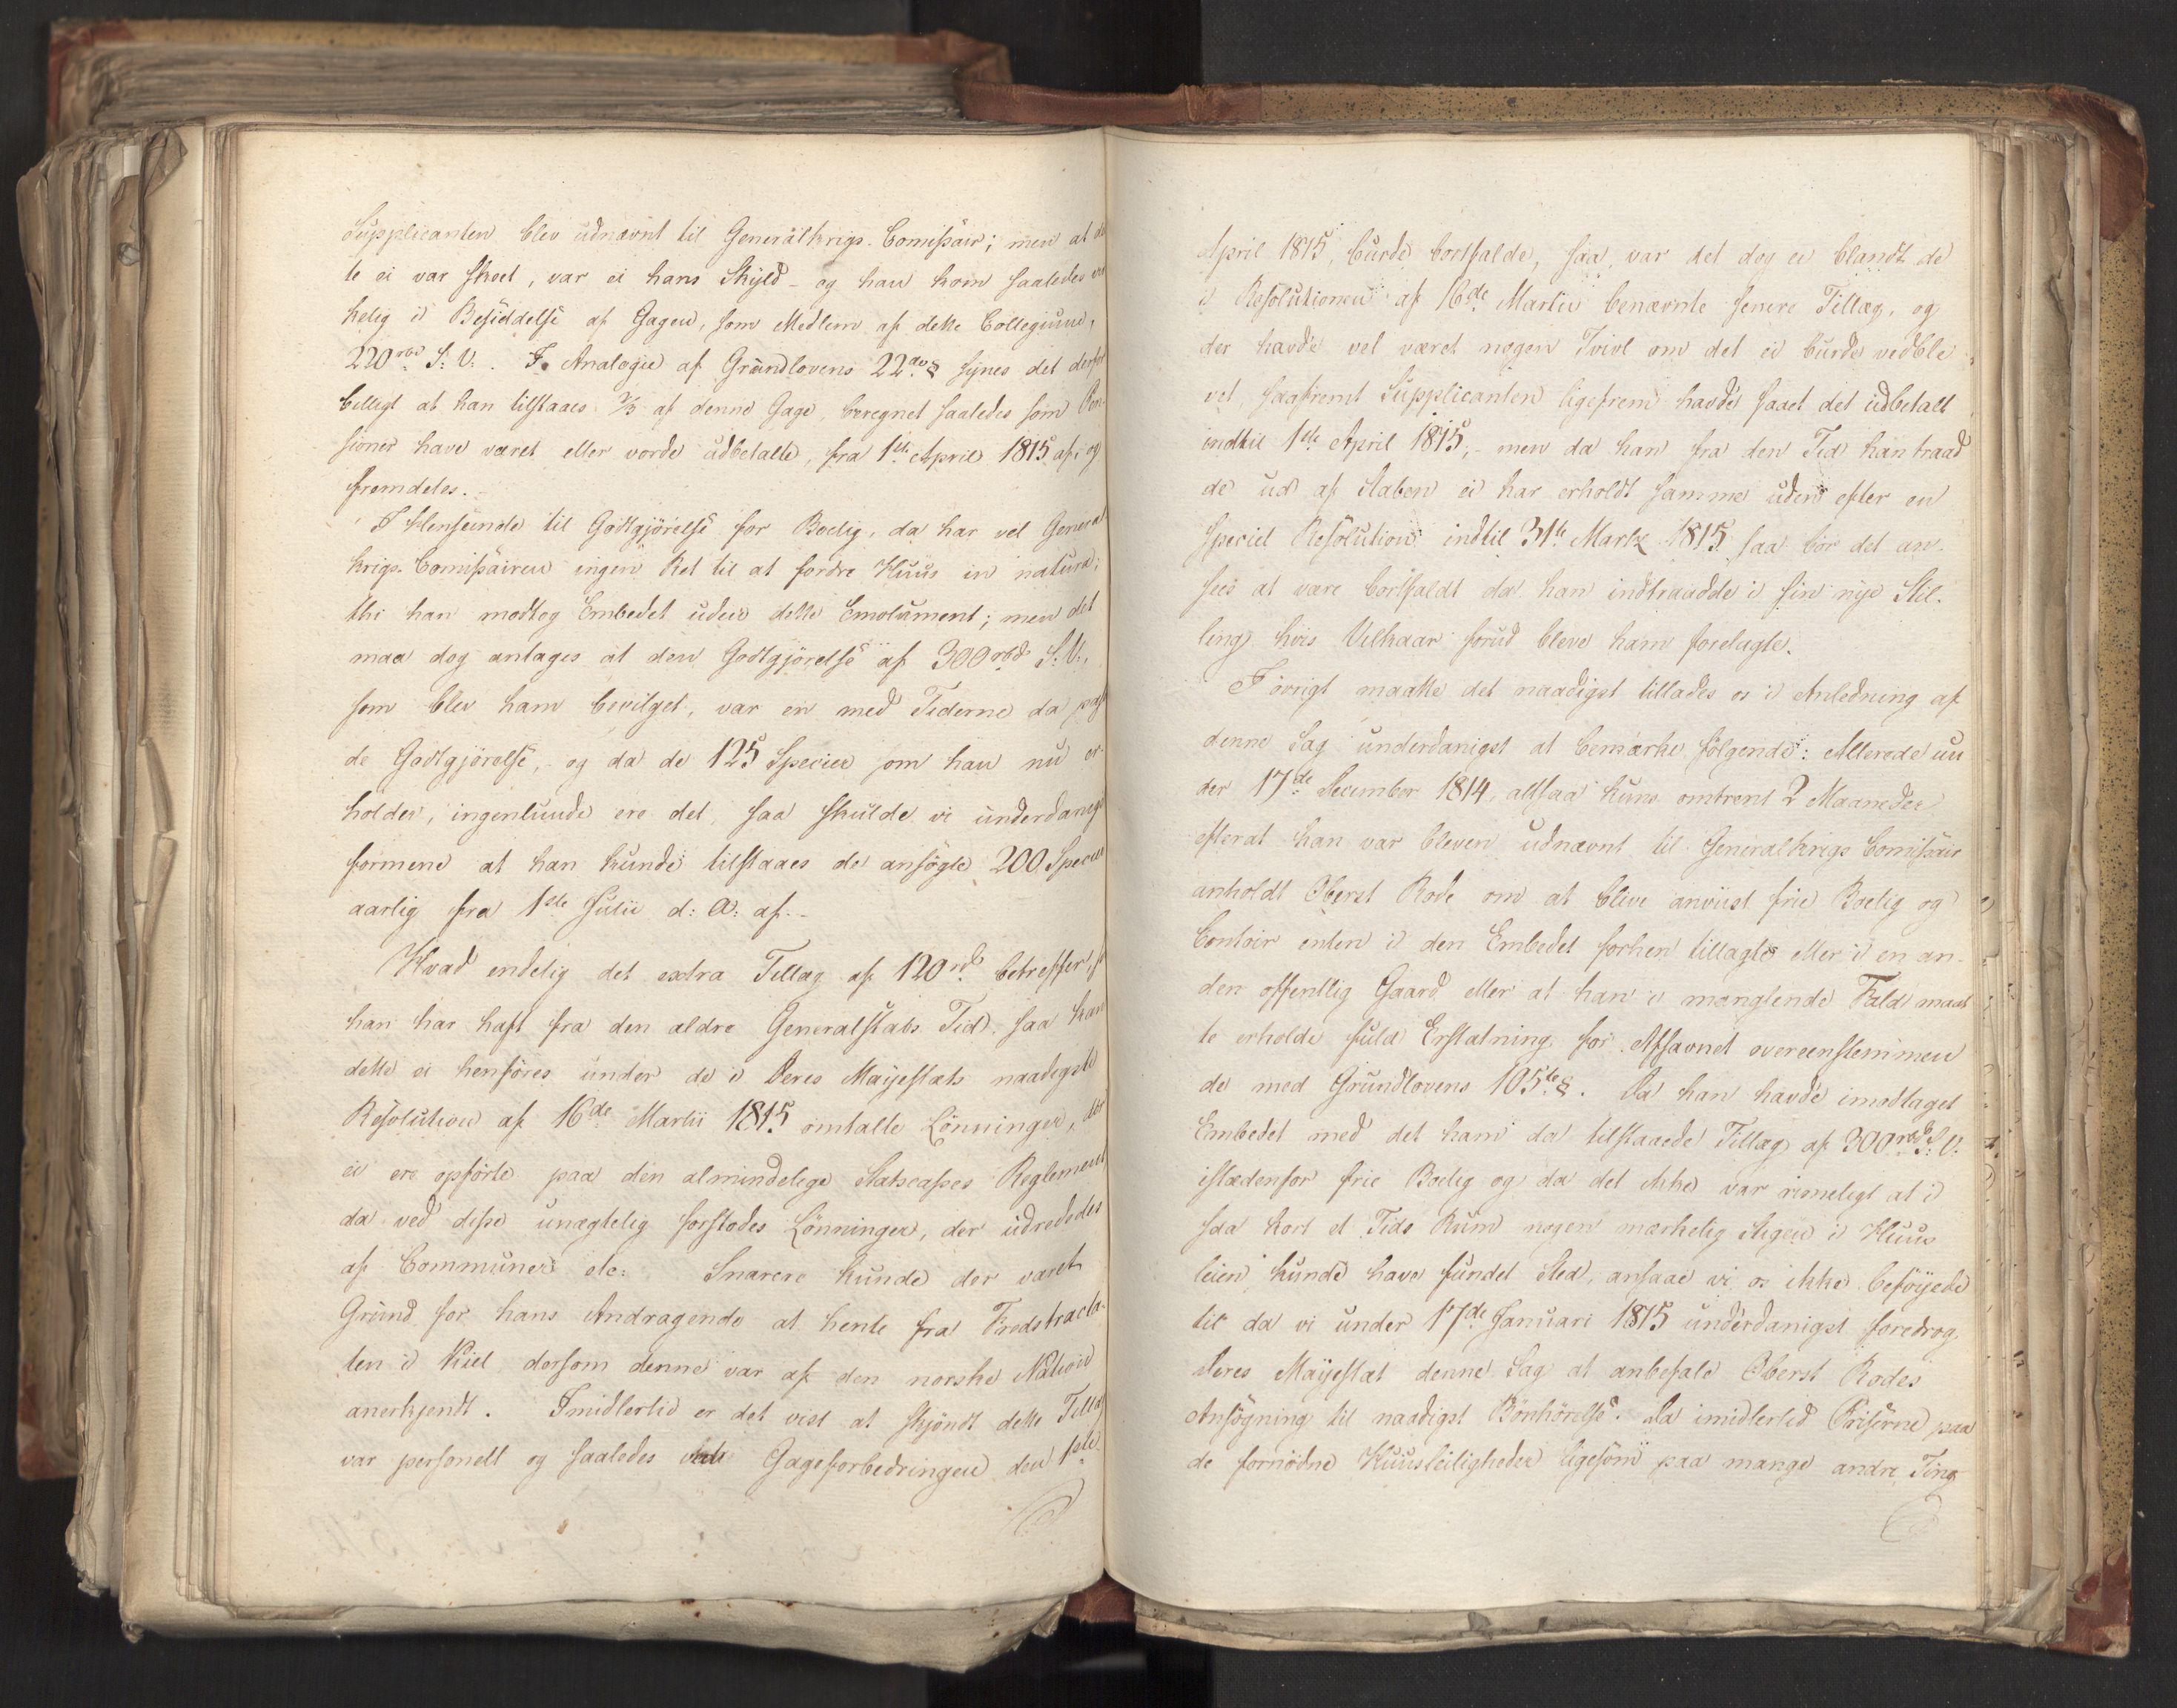 Supplicanten blev udnævnt til Generalkrigs-Comissair; men at det
te ei var skeet, var ei hans Skyld – og han kom saaledes
kelig i Besiddelse af Gagen, som Medlem af dette Collegium,
220 rbd S: V:. I Analogie af Grundlovens 22de § synes det derfor
billigt at han tilstaaes 2/3 af denne Gage, beregnet saaledes som Pen-
sioner have været eller vorde udbetalte, fra 1ste April 1815 af og
fremdeles.
I Henseende til Godtgjörelse for Boelig, da har vel General
krigs-Comissairen ingen Ret til at fordre Huus in natura;
thi han modtog Embedet uden dette Emolument; men det
maa dog antages at den Godtgjörelse af 300 rbd S: V:,
som blev ham bevilget, var en med Tiderne da pass
de Godtgjörelse, – og da de 125 Species som han nu er-
holder, ingenlunde ere det, saa skulde vi underdanigst
formene at han kunde tilstaaes de ansögte 200 Species
aarlig fra 1ste Julii d: A: af. –
Hvad endelig det extra Tillæg af 120 rd betreffer,
han har haft fra den ældre Generalstabs Tid, saa kan
dette ei henföres under de i Deres Mayestæts naadigste
Resolution af 16de Martii 1815 omtalte Lönninger, der
ei ere opförte paa den almindelige Statscasses Reglement
da ved disse unægtelig forstodes Lönninger, der udrededes
af Communer etc: Snarere kunde der været
Grund for hans Andragende at hente fra Fredstracta-
ten i Kiel dersom denne var af den norske Nation
anerkjendt. Imidlertid er det vist at skjöndt dette Tillæg
var personelt og saaledes ved Gageforbedringen den 1ste
April 1815, burde bortfalde, saa var det dog ei blandt de
i Resolutionen af 16de Martii benævnte senere Tillæg, og
der havde vel været nogen Tvivl om det ei burde vedble
vet, saafremt Supplicanten ligefrem havde faaet det udbetalt
indtil 1ste April 1815; – men da han fra den Tid han traad
de ud af Staben ei har erholdt samme uden efter en
speciel Resolution indtil 31te Martz 1815 saa bör det an-
sees at være bortfaldt da han indtraadde i sin nye Stil-
ling hvis Vilkaar forud bleve ham forelagte.
I övrigt maatte det naadigst tillades os i Anledning af
denne Sag underdanigst at bemærke fölgende: Allerede un
der 17de December 1814, altsaa kuns omtrent 2 Maaneder
efterat han var bleven udnævnt til Generalkrigs Comissair
anholdt Oberst Rode om at blive anviist frie Boelig og
Contoir enten i den Embedet forhen tillagte eller i en an-
den offentlig Gaard eller at han i manglende Fald maat
te erholde fuld Erstatning for Afsavnet overeenstemmen
de med Grundlovens 105te §. Da han havde imodtaget
Embedet med det ham da tilstaaede Tillæg af 300 rbd S: V:
istædenfor frie Boelig og da det ikke var rimeligt at i
saa kort et Tids Rum nogen mærkelig Stigen i Huus
leien kunde have fundet Sted, ansaae vi os ikke beföyede
til da vi under 17de Januari 1815 underdanigst foredrog
Deres Mayestæt denne Sag at anbefale Oberst Rodes
Ansögning til naadigst Bönhörelse. Da imidlertid Priserne paa
de fornödne Huusleiligheder ligesom paa mange andre Ting